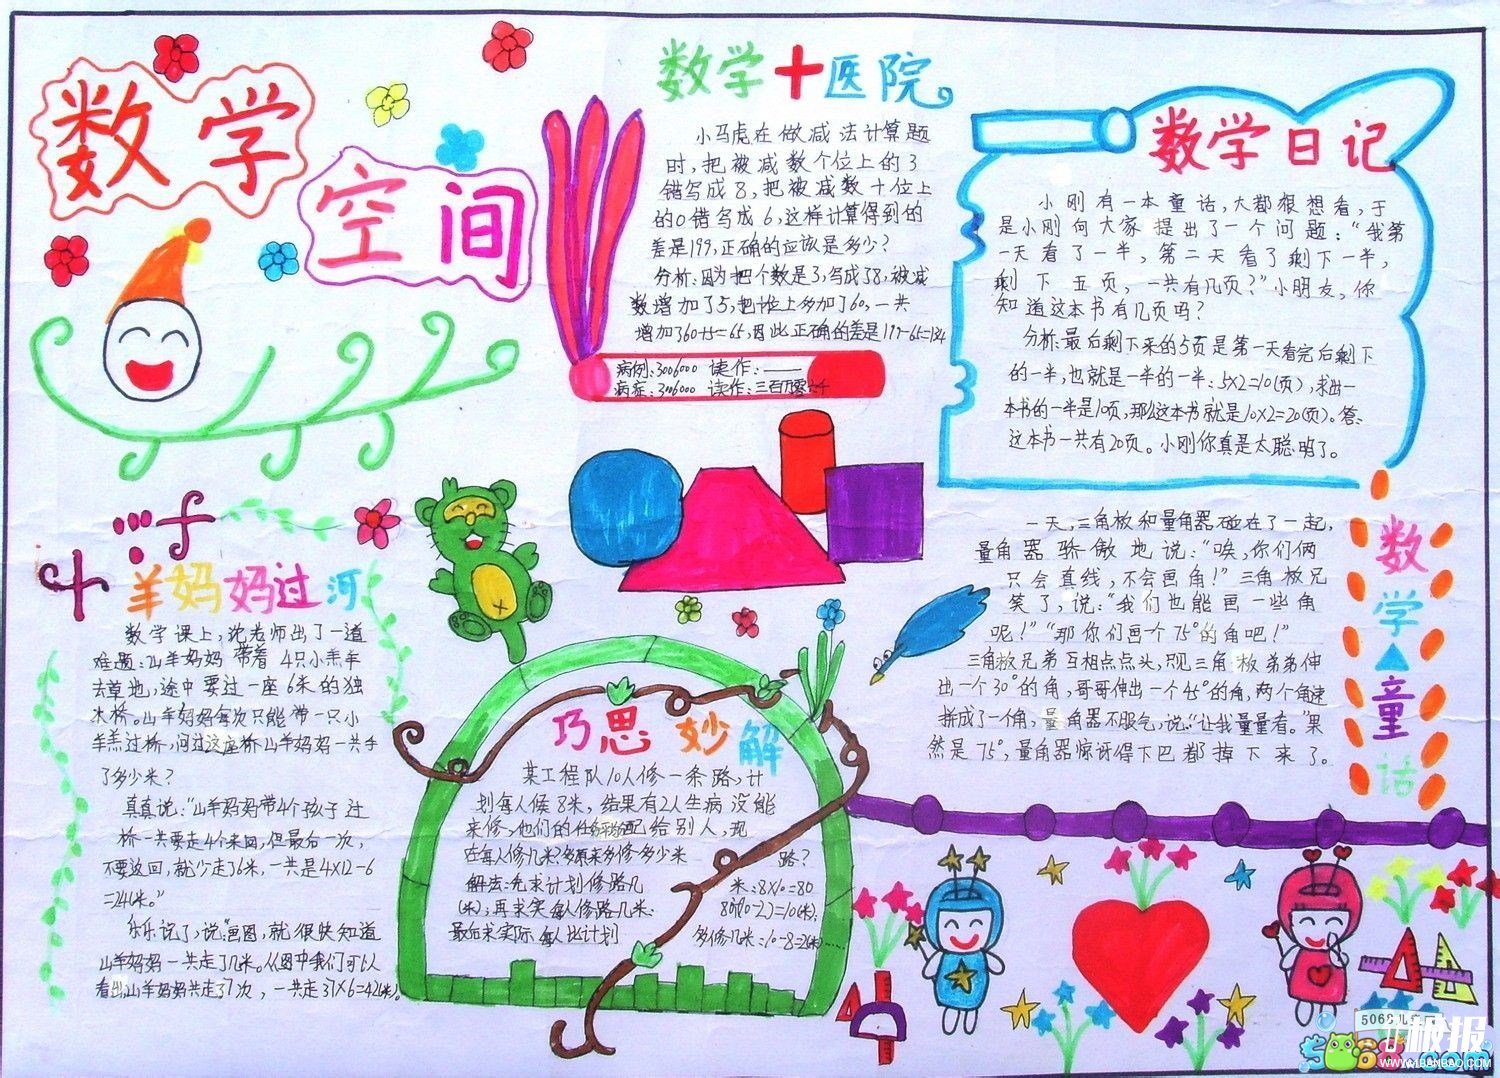 数学
空间
数学十医院
小马虎在做减法计算题
时,把被减数个位上的3
错写成8,把被减数十位上
的0错写成6,这样计算得到的
差是199,正确的应该是多少?
分析:因为把个数是3,写成了8,被减
数增加了5,把谁上多加了60,一共
增加了60+5=65,因此正确的差是199-65=134
病例:3006000 读作:——
病症:3006000 读作:三百万零六千
数学日记
小刚有一本童话,大都很想看,于
是小刚向大家提出了一个问题:“我第
一天看了一半,第二天看了剩下一半,
剩下五页,一共有几页?”小朋友,你
知道这本书有几页吗?
分析:最后剩下来的5页是第一天看完后剩下
的一半,也就是一半的一半:5×2=10(页),求出一
本书的一半是10页,那么这本书就是10×2=20(页)。答:
这本书一共有20页。小刚你真是太聪明了。
羊妈妈过河
数学课上,沈老师出了一道
难题:山羊妈妈带着4只小羔羊
去草地,途中要过一座6米的独
木桥。山羊妈妈每次只能带一只小
羊羔过桥,问过这座桥山羊妈妈一共走
了多少米?
真真说:“山羊妈妈带4个孩子过
桥一共要走4个来回,但最后一次,
不要返回,就少走了6米,一共是4×12-6
=42(米)。”
乐乐说了,说:“画图,就很快知道
山羊妈妈一共走了几米。从图中我们可以
看出山羊妈妈共走了7次,一共走了7×6=42(米)。
巧思妙解
某工程队10人修一条路,计
划每人修8米,结果有2人生病没能
来修,他们的任务平均分配给别人,现
在每人修几米?多原来多修多少米
路?
解法:先求计划修路几
米:8×10=80
(米);再求实每人修路几米:
80÷(10-2)=10(米);
最后求实际每人比计划
多修几米:10-8=2(米)……
数学童话
一天,三角板和量角器碰在了一起,
量角器骄傲地说:“唉,你们俩
只会直线,不会画角!”三角板兄
笑了,说:“我们也能画一些角
呢!”“那你们画个75°的角吧!”
三角板兄弟互相点点头,只见三角板弟弟伸
出一个30°的角,哥哥伸出一个45°的角,两个角速
拼成了一个角,量角器不服气,说:“让我量量看。”果
然是75°,量角器惊讶得下巴都掉下来了。
5068儿
极报
WWW.1BANBAO.COM
5068.com